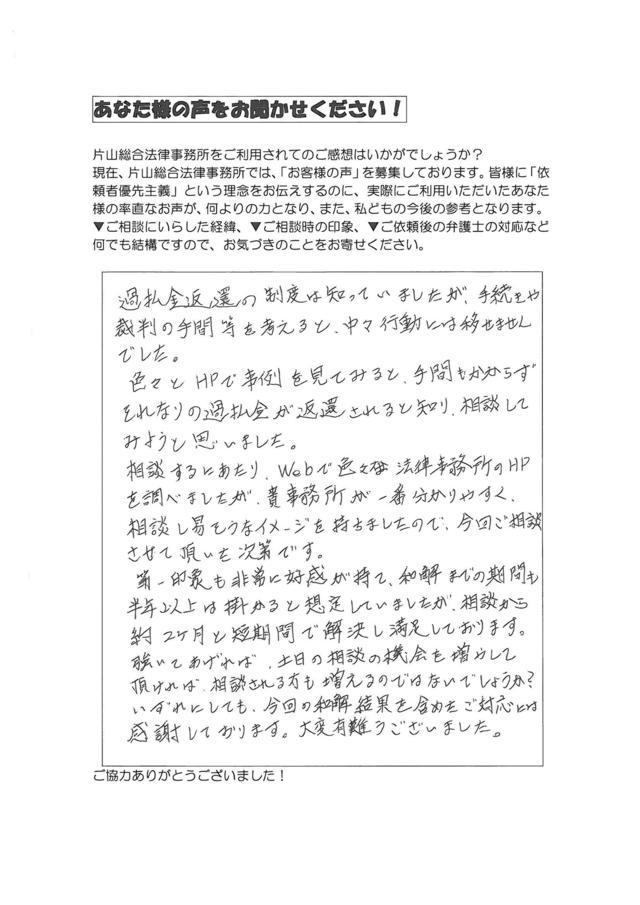 あなた様の声をお聞かせください！
片山総合法律事務所をご利用されてのご感想はいかがでしょうか？
現在、片山総合法律事務所では、「お客様の声」を募集しております。皆様に「依
頼者優先主義」という理念をお伝えするのに、実際にご利用いただいたあなた
様の率直なお声が、何よりの力となり、また、私どもの今後の参考となります。
▼ご相談にいらした経緯、▼ご相談時の印象、▼ご依頼後の弁護士の対応など
何でも結構ですので、お気づきのことをお寄せください。
過払金返還の制度は知っていましたが、手続きや
裁判の手間等を考えると、中々行動には移せません
でした。
色々とHPで事例を見てみると、手間もかからず
それなりの過払金が返還されると知り、相談して
みようと思いました。
相談するにあたり、Webで色々な法律事務所のHP
を調べましたが、貴事務所が一番分かりやすく、
相談し易そうなイメージを持ちましたので、今回ご相談
させて頂いた次第です。
第一印象も非常に好感が持て、和解までの期間も
半年以上は掛かると想定していましたが、相談から
約2ヶ月と短期間で解決し満足しております。
強いてあげれば、土日の相談の機会を増やして
頂ければ、相談される方も増えるのではないでしょうか？
いずれにしても、今回の和解結果を含めたご対応には
感謝しております。大変有難うございました。
ご協力ありがとうございました！